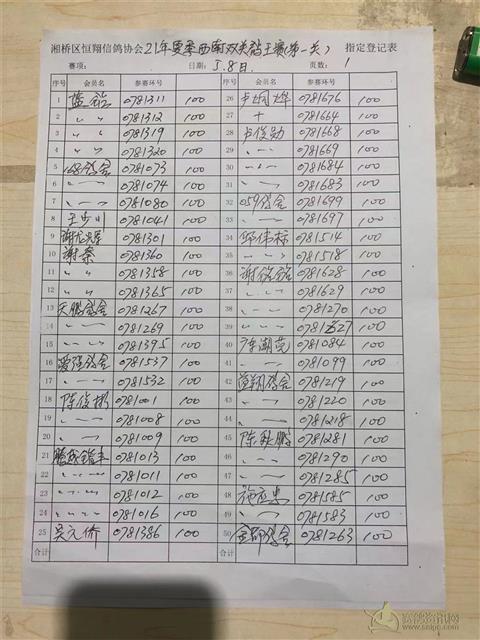 湘桥区恒翔信鸽协会21年夏季西南双关鸽王赛(第一关) 指定登记表
赛项: 日期: 5.8日. 页数: 1
序号 会员名 参赛环号 序号 会员名 参赛环号
1 蓝铅 0781311 100 26 卢炯烨 0781676 100
2 〃 〃 0781312 100 27 十 0781664 100
3 〃 〃 0781319 100 28 卢俊勋 0781668 100
4 〃 〃 0781320 100 29 0781669 100
5 168鸽舍 0781073 100 30 0781684 100
6 0781074 100 31 0781683 100
7 0781080 100 32 059鸽舍 0781699 100
8 王少川 0781041 100 33 0781697 100
9 0781301 100 34 邱伟标 0781514 100
10 谢泰 0781360 100 35 0781518 100
11 〃 〃 0781358 100 36 0781628 100
12 〃 〃 0781365 100 37 0781629 100
13 天鹏鸽舍 0781267 100 38 0781270 100
14 0781269 100 39 0781627 100
15 0781395 100 40 0781084 100
16 爱强鸽舍 0781537 100 41 0781099 100
17 0781532 100 42 鸽舍 0781219 100
18 陈俊彬 0781001 100 43 0781220 100
19 0781008 100 44 0781218 100
20 0781009 100 45 陈秋鹏 0781281 100
21 0781013 100 46 0781290 100
22 0781011 100 47 0781285 100
23 0781012 100 48 0781585 100
24 0781016 100 49 0781583 100
25 吴元侨 0781386 100 50 鸽舍 0781263 100
合计 合计